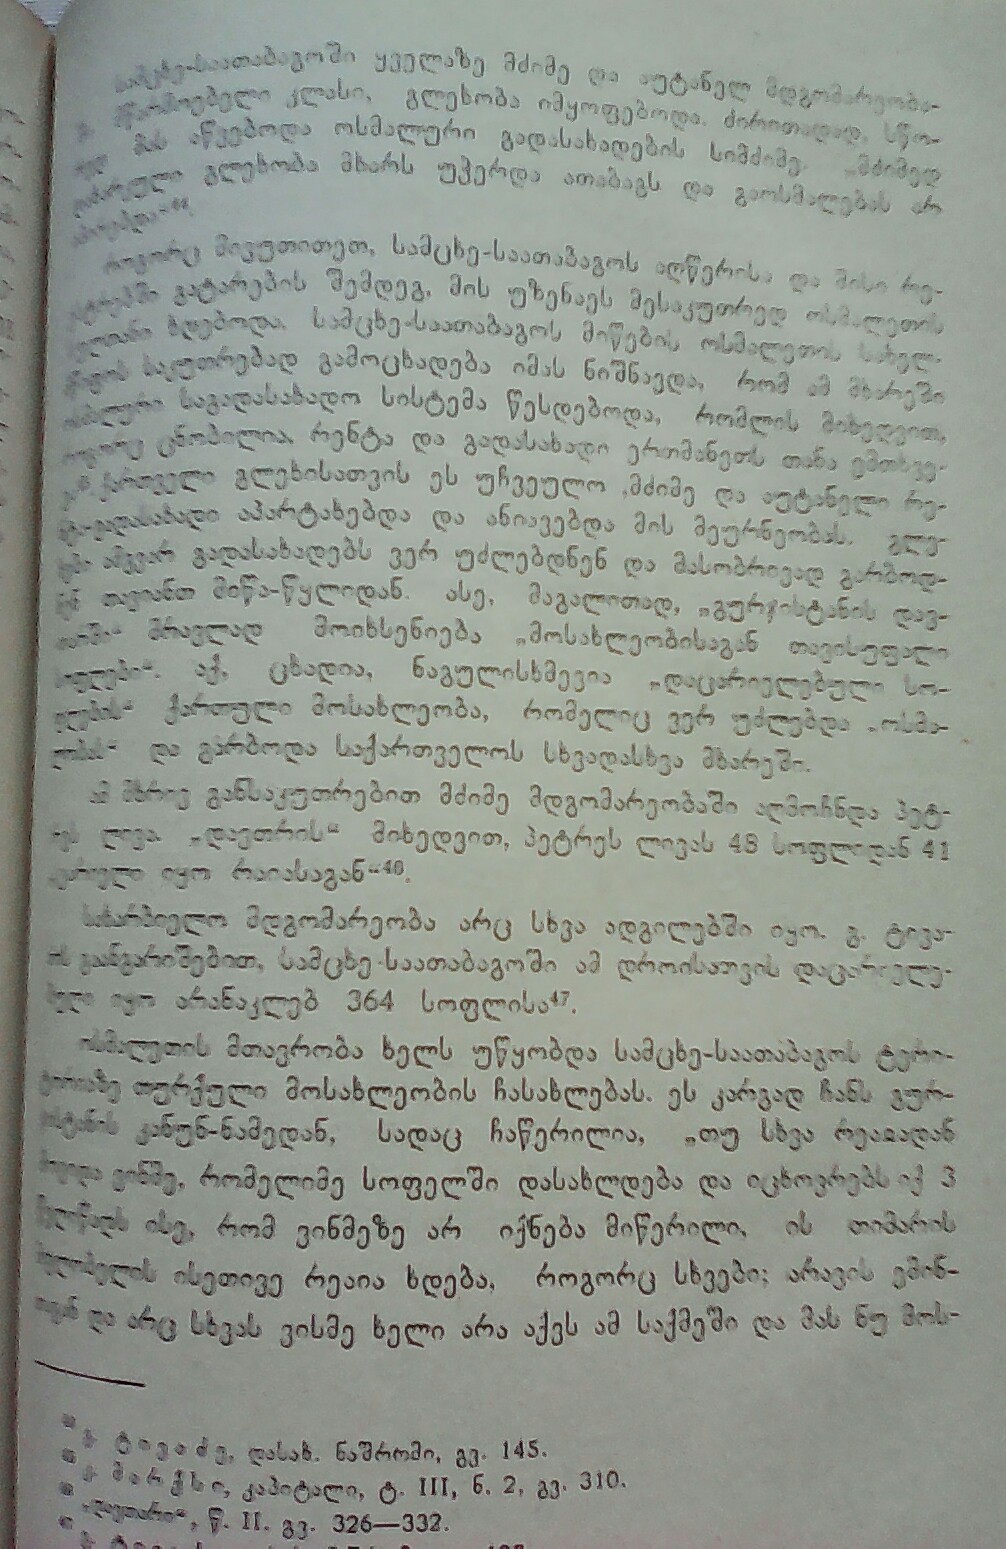 სამცხე-საათაბაგოში ყველაზე მძიმე და აუტანელ მდგომარეობა-
მწარმოებელი კლასი, გლეხობა იმყოფებოდა. ძირითადად, სწო-
რედ მას აწვებოდა ოსმალური გადასახადების სიმძიმე. „მძიმედ
გლეხობა მხარს უჭერდა ათაბაგს და გაოსმალებას არ
როგორც მივუთითეთ, სამცხე-საათაბაგოს აღწერისა და მისი რე-
გატარების შემდეგ, მის უზენაეს მესაკუთრედ ოსმალეთის
ხდებოდა. სამცხე-საათაბაგოს მიწების ოსმალეთის სახელ-
საკუთრებად გამოცხადება იმას ნიშნავდა, რომ ამ მხარეში
ოსმალური საგადასახადო სისტემა წესდებოდა, რომლის მიხედვით,
როგორც ცნობილია, რენტა და გადასახადი ერთმანეთს თანა ემთხვე-
ქართველი გლეხისათვის ეს უჩვეულო, მძიმე და აუტანელი რე-
აპარტახებდა და ანიავებდა მის მეურნეობას. გლე-
ხები ამგვარ გადასახადებს ვერ უძლებდნენ და მასობრივად გარბოდ-
ნენ თავიანთ მიწა-წყლიდან. ასე, მაგალითად, „გურჯისტანის დავ-
თარში“ მრავლად მოიხსენიება „მოსახლეობისაგან თავისუფალი
სოფლები“. აქ, ცხადია, ნაგულისხმევია „დაცარიელებული სო-
ფლების“ ქართული მოსახლეობა, რომელიც ვერ უძლებდა „ოსმა-
ლობას“ და გარბოდა საქართველოს სხვადასხვა მხარეში.
ამ მხრივ განსაკუთრებით მძიმე მდგომარეობაში აღმოჩნდა პეტ-
რეს ლივა. „დავთრის“ მიხედვით, პეტრეს ლივას 48 სოფლიდან 41
იყო რაიასაგან“⁴⁶.
სახარბიელო მდგომარეობა არც სხვა ადგილებში იყო. გ. ტივა-
ძის გაანგარიშებით, სამცხე-საათაბაგოში ამ დროისათვის დაცარიელე-
ბული იყო არანაკლებ 364 სოფლისა⁴⁷.
ოსმალეთის მთავრობა ხელს უწყობდა სამცხე-საათაბაგოს ტერი-
ტორიაზე თურქული მოსახლეობის ჩასახლებას. ეს კარგად ჩანს გურ-
ჯისტანის კანუნ-ნამედან, სადაც ჩაწერილია, „თუ სხვა რეაიადან
მოვიდა ვინმე, რომელიმე სოფელში დასახლდება და იცხოვრებს იქ 3
წელიწადს ისე, რომ ვინმეზე არ იქნება მიწერილი, ის თიმარის
მფლობელის ისეთივე რეაია ხდება, როგორც სხვები; არავის ემინ-
თაგან და არც სხვას ვისმე ხელი არა აქვს ამ საქმეში და მას ნუ მოს-
ტივაძე, დასახ. ნაშრომი, გვ. 145.
მარქსი, კაპიტალი, ტ. III, ნ. 2, გვ. 310.
„დავთარი“, წ. II. გვ. 326—332.